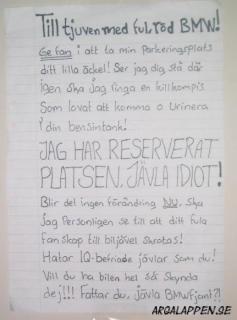 Till tjuven med ful röd BMW!
Ge fan i att ta min parkeringsplats
ditt lilla äckel! Ser jag dig stå där
igen ska jag ringa en killkompis
Som lovat att komma o Urinera
i din bensintank!
JAG HAR RESERVERAT
PLATSEN, JÄVLA IDIOT!
Blir det ingen förändring NU, Ska
jag Personligen se till att ditt fula
fanskap till biljävel Skrotas!
Hatar IQ-befriade jävlar som du!
Vill du ha bilen hel så Skynda
dej!!! Fattar du, jävla BMW Fjant?!
ARGALAPPEN.SE